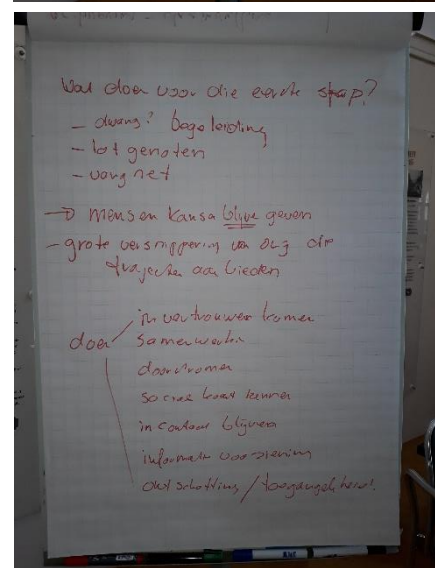 Wat doen voor die eerste stap?
- dwang? begeleiding
- lotgenoten
- vangnet
→ mensen kansen blijve geven
- grote versnippering van org die
trajecten aanbieden
doen
in vertrouwen komen
samenwerken
doorstromen
sociaal kaart kennen
in contact blijven
informatie voorziening
ontschotting / toegangelkheid!